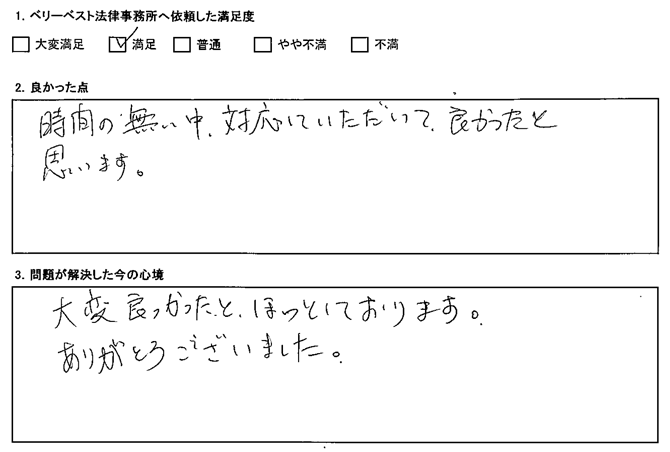 1. ベリーベスト法律事務所へ依頼した満足度
大変満足 満足 普通 やや不満 不満
2. 良かった点
時間の無い中、対応していただいて、良かったと
思います。
3. 問題が解決した今の心境
大変良かったと、ほっとしております。
ありがとうございました。